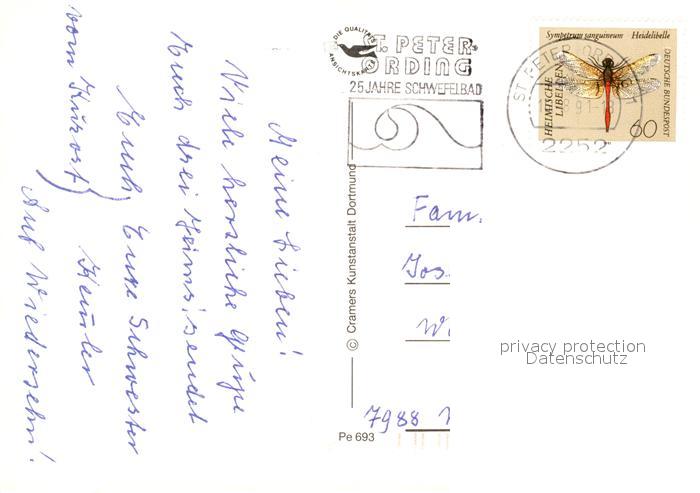 Meine Lieben!
Viele herzliche Grüße
Euch drei Heims sendet
Euch Eure Schwester
vom Kurort) Heimler
Auf Wiedersehn!
DIE QUALITÄTS
ANSICHTSKARTE
ST. PETER-
ORDING
25 JAHRE SCHWEFELBAD
ST PETER-ORDING
91-18
2252
Sympetrum sanguineum Heidelibelle
HEIMISCHE
LIBELLEN
DEUTSCHE BUNDESPOST
60
© Cramers Kunstanstalt Dortmund
Pe 693
Fam.
Jos.
W.
7988
privacy protection
Datenschutz